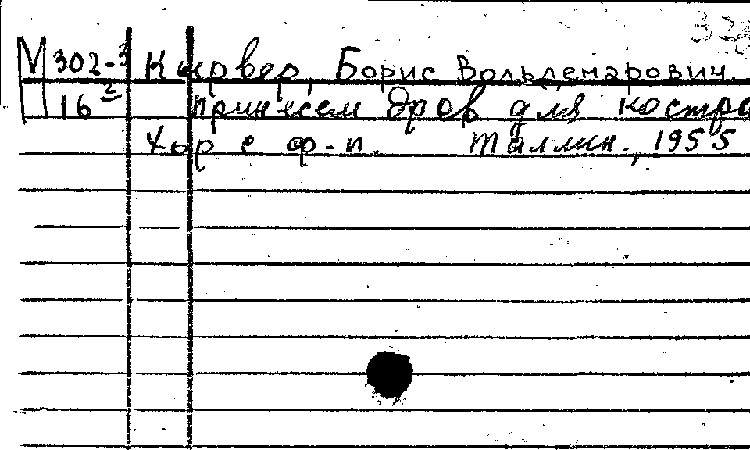 М 302-3 Кырвер, Борис Вольдемарович.
П 16 2 Принесем дров для костра
Хор с ф-п. Таллин., 1955